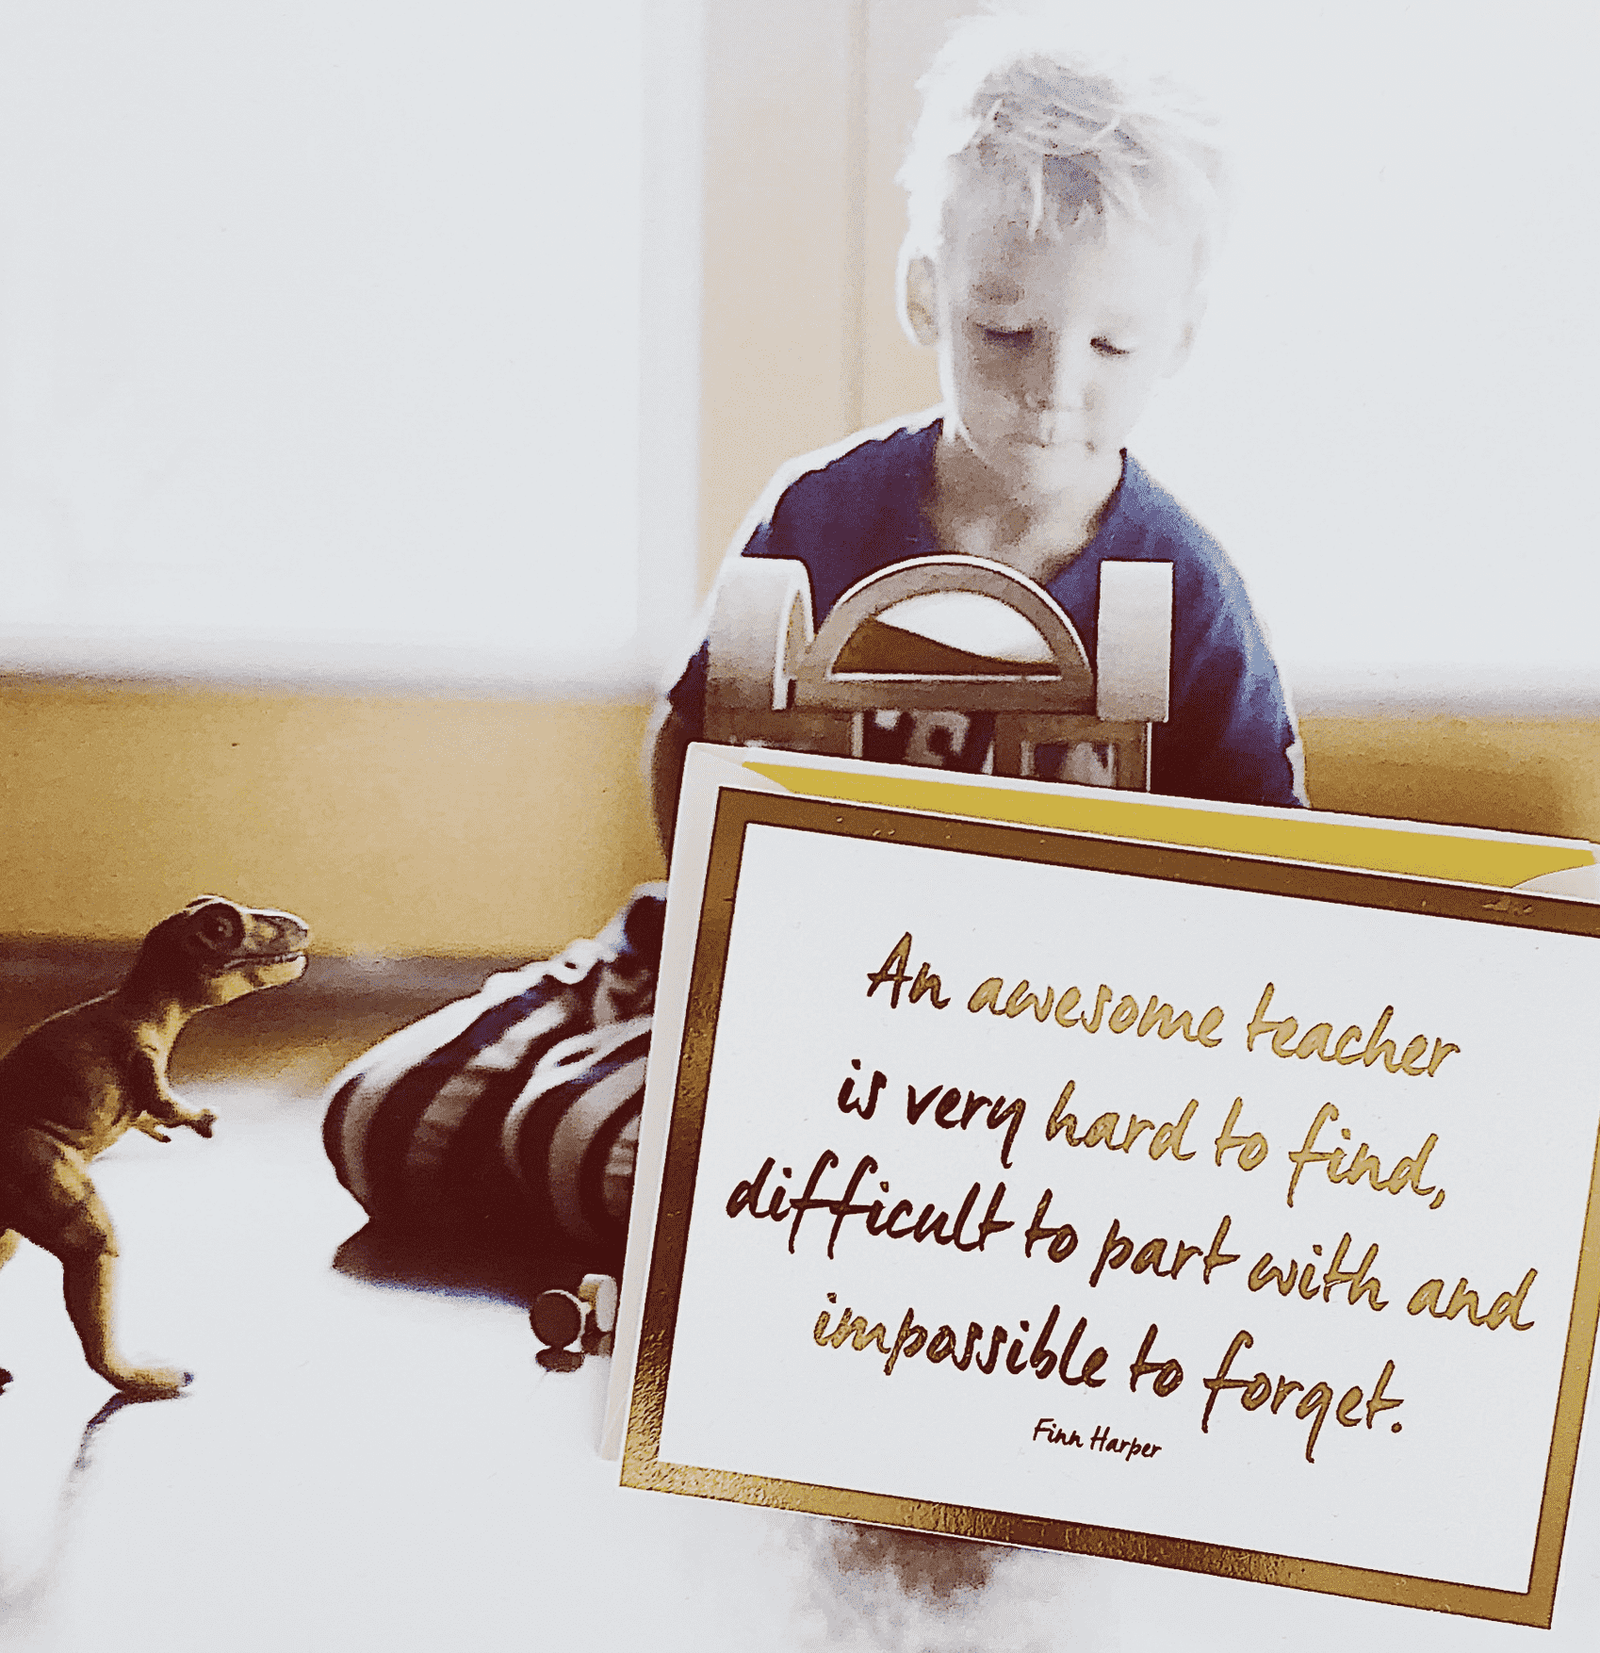 An awesome teacher
is very hard to find,
difficult to part with and
impossible to forget.
Finn Harper